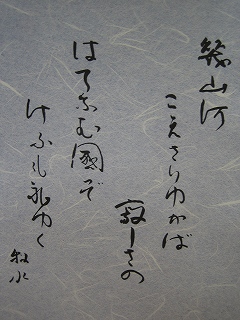 幾山河
こえさりゆかば
寂しさの
はてなむ國ぞ
けふも旅ゆく
牧水